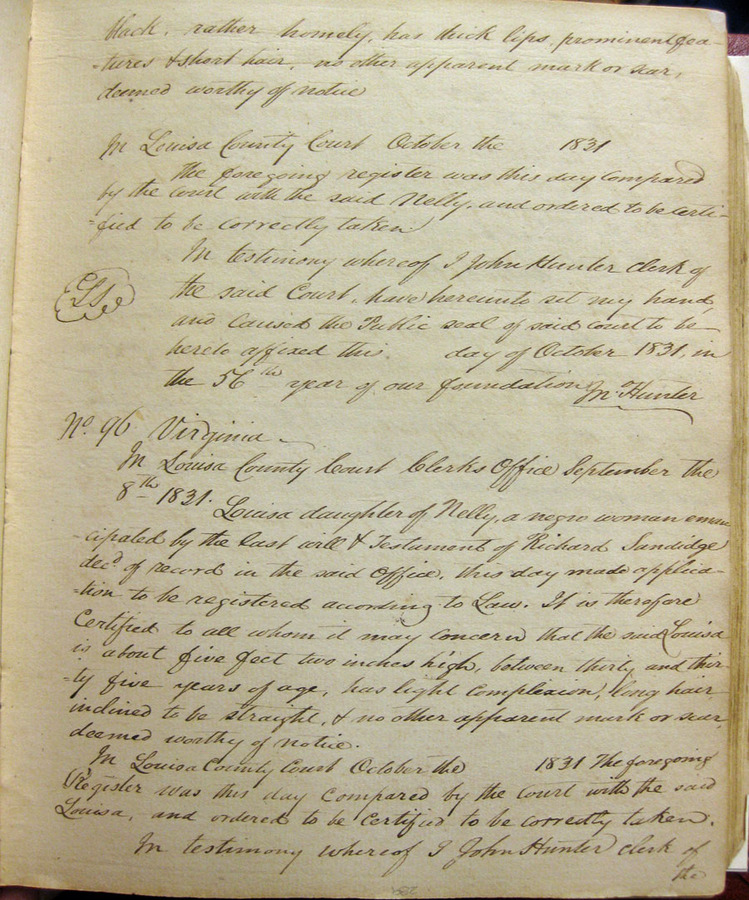 black, rather homely, has thick lips, prominent fea-
-tures & short hair, no other apparent mark or scar,
deemed worthy of notice
In Louisa County Court October the 1831
The foregoing register was this day compared
by the Court with the said Nelly, and ordered to be certi-
-fied to be correctly taken.
In testimony whereof I John Hunter clerk of
the said Court, have hereunto set my hand,
and caused the Public seal of said court to be
hereto affixed this day of October 1831, in
the 56th year of our foundation Jno Hunter
No. 96 Virginia
In Louisa County Court Clerks Office September the
8th 1831.
Louisa daughter of Nelly, a negro woman eman
-cipated by the last will & Testament of Richard Sandidge
decd. of record in the said Office, this day made applica-
-tion to be registered according to Law. It is therefore
Certified to all whom it may concern that the said Louisa
is about five feet two inches high, between thirty and thir-
-ty five years of age, has light complexion, long hair
inclined to be straight, & no other apparent mark or scar,
deemed worthy of notice.
In Louisa County Court October the 1831 The foregoing
Register was this day compared by the court with the said
Louisa, and ordered to be certified to be correctly taken.
In testimony whereof I John Hunter clerk of
the